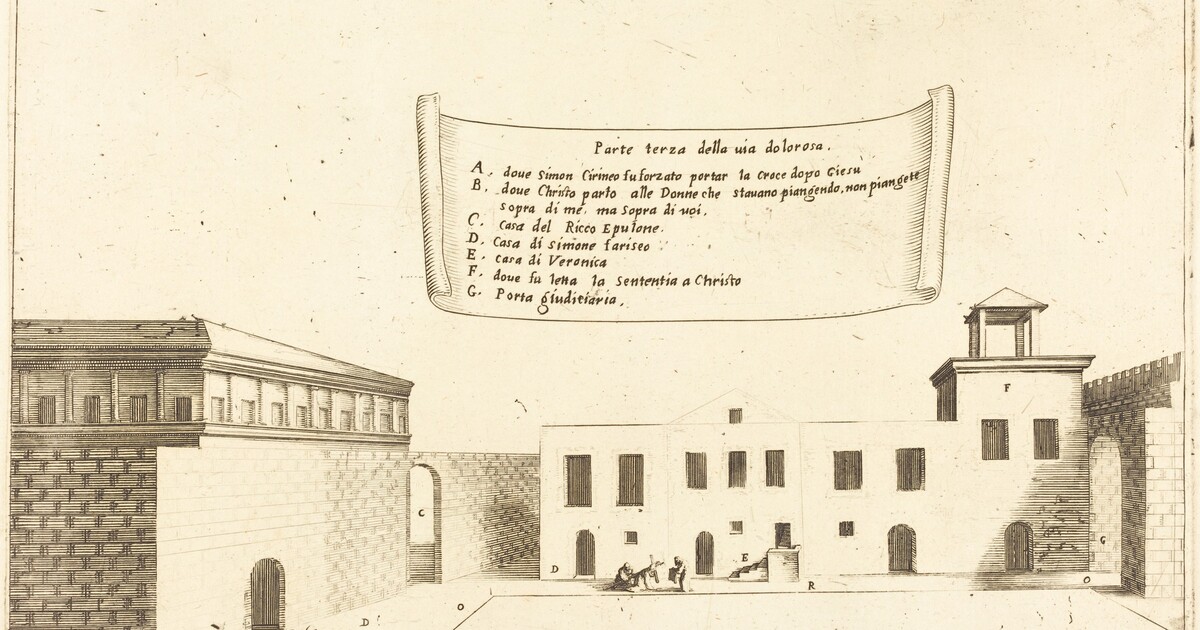 Parte terza della uia dolorosa.
A. doue Simon Cirineo fu forzato portar la Croce dopo Giesu
B. doue Christo parlo alle Donne che stauano piangendo, non piangete
sopra di me, ma sopra di uoi.
C. Casa del Ricco Epulone.
D. Casa di Simone fariseo
E. Casa di Veronica
F. doue fu letta la Sententia a Christo
G. Porta giuditiaria.
F
C
G
E
D
R
O
O
D